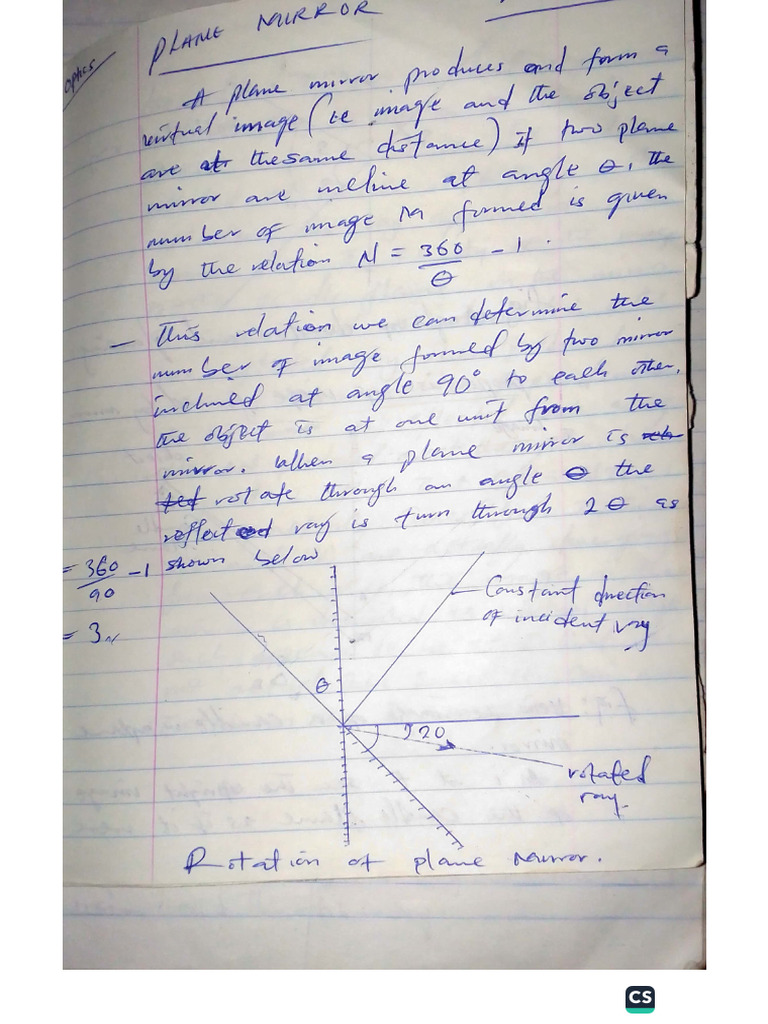 optics
PLANE MIRROR
A plane mirror produces and form a
virtual image (ie image and the object
are at the same distance) If two plane
mirror are incline at angle θ, the
number of image N formed is given
by the relation N = 360/θ - 1.
- This relation we can determine the
number of image formed by two mirror
inclined at angle 90° to each other,
the object is at one unit from the
mirror. When a plane mirror is
rotate through an angle θ the
reflected ray is turn through 2θ as
shown below
= 360/90 - 1
= 3
Constant direction
of incident ray
θ
2θ
rotated
ray.
Rotation of plane mirror.
CS